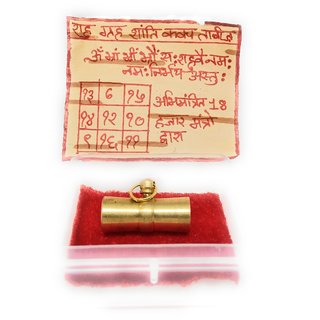 राहु ग्रह शांति कवच ताबीज
ॐ भ्रां भ्रीं भ्रौं सः राहवे नमः
नमः निर्भय अस्तुः
१३ ८ १५
१४ १२ १०
९ १६ ११
अभिमंत्रित 18
हजार मंत्रो
द्वारा